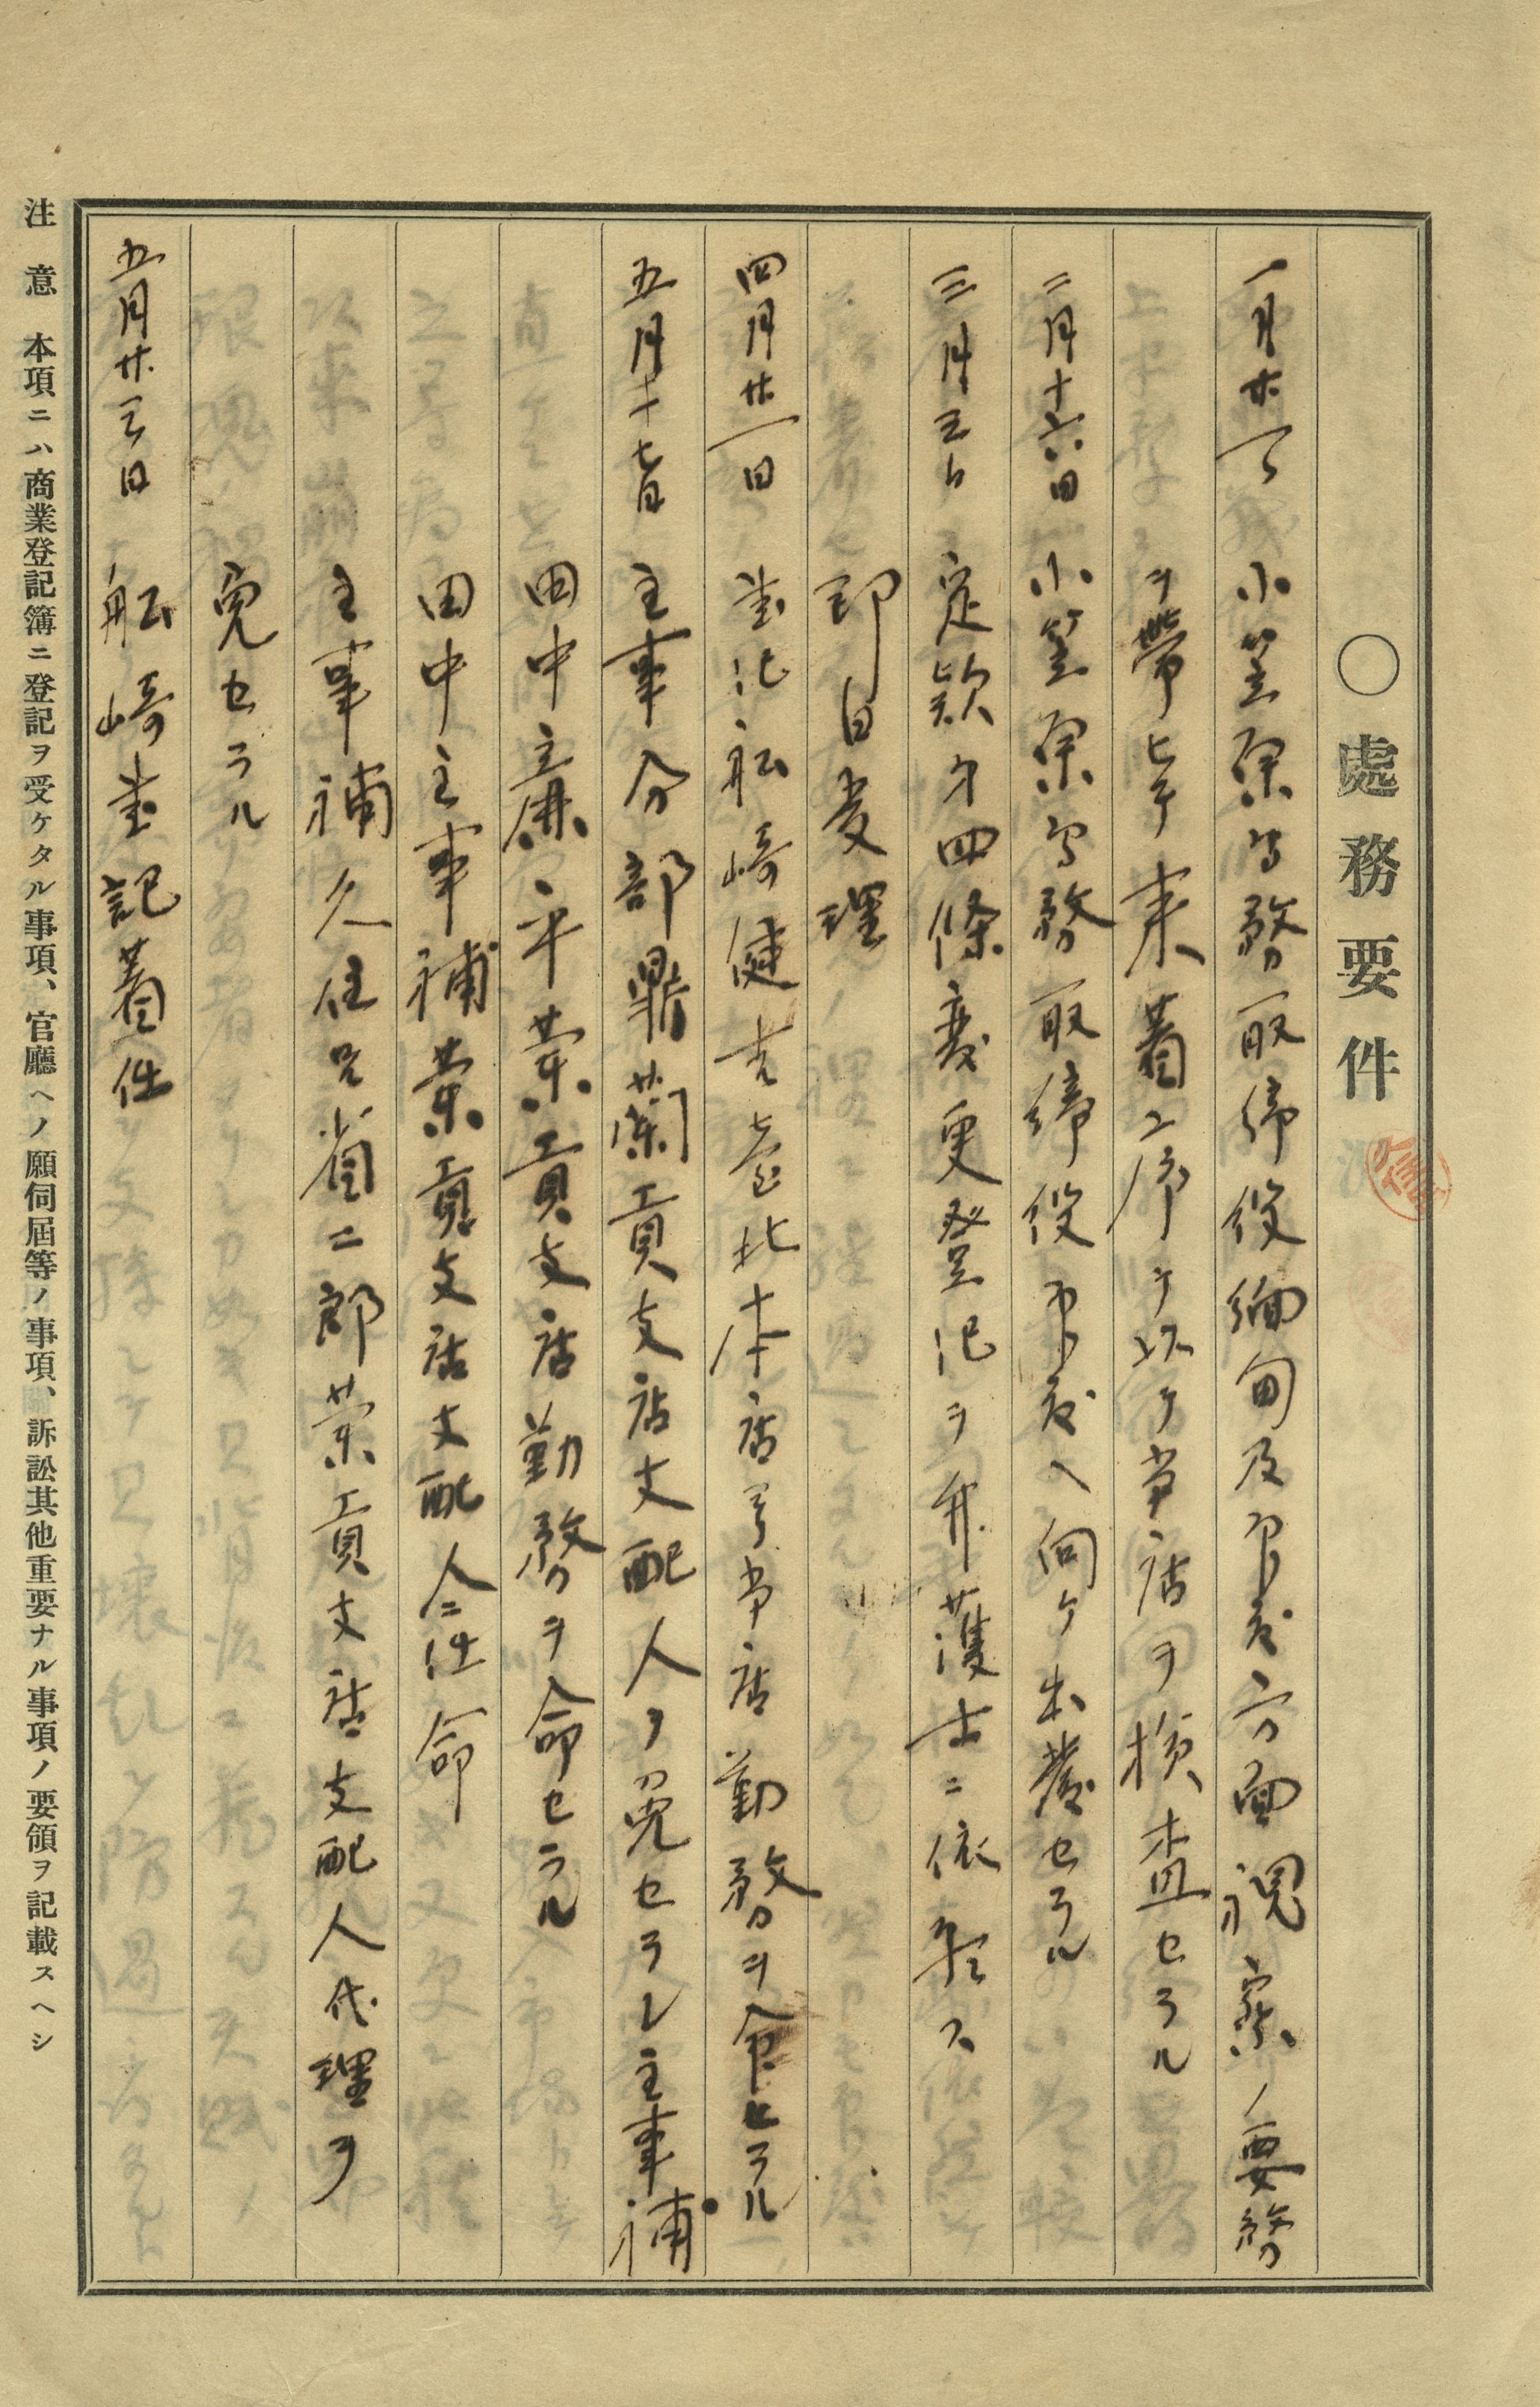 〇處務要件
一月廿一日 小笠原常務取締役緬甸及印度方面視察ノ要務
ヲ帶ヒテ來着ノ序ヲ以テ當店ヲ檢査セラル
二月十六日 小笠原常務取締役印度ヘ向ケ出發セラル
三月三日 定款第四條變更登記ヲ弁護士ニ依頼ス
即日受理
四月廿一日 書記船崎健吉臺北本店ヨリ當店勤務ヲ命セラル
五月十七日 主事分部鼎蘭貢支店支配人ヲ免セラレ主事補
田中廉平蘭貢支店勤務ヲ命セラル
田中主事補蘭貢支店支配人ニ任命
主事補久住呂省二郎蘭貢支店支配人代理ヲ
免セラル
五月廿三日 船崎書記着任
注意 本項ニハ商業登記簿ニ登記ヲ受ケタル事項、官廳ヘノ願伺屆等ノ事項、訴訟其他重要ナル事項ノ要領ヲ記載スヘシ